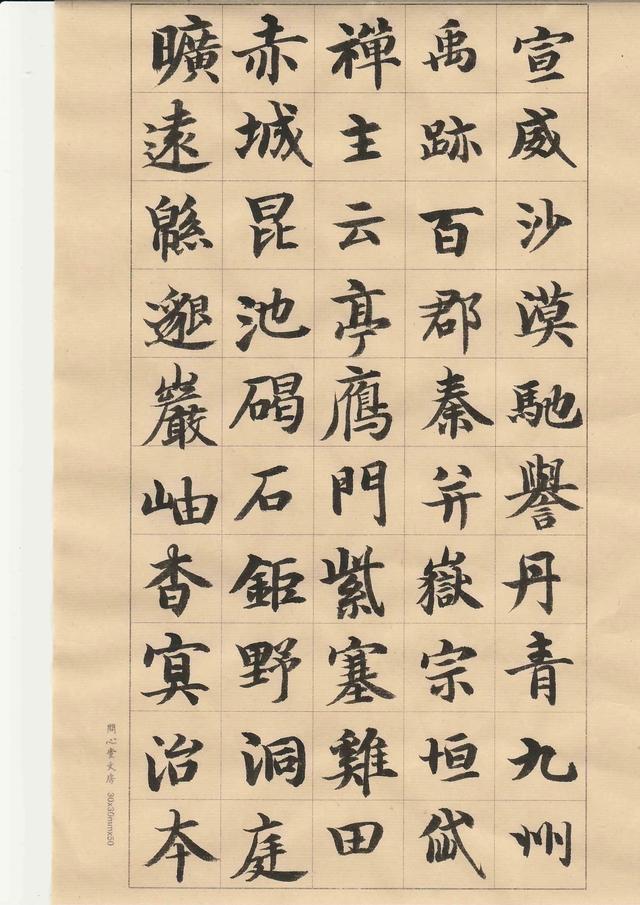 宣威沙漠馳譽丹青九州
禹跡百郡秦并嶽宗恒岱
禪主云亭鴈門紫塞雞田
赤城昆池碣石鉅野洞庭
曠遠緜邈巖岫杳冥治本
問心堂文房 30x30mmx50